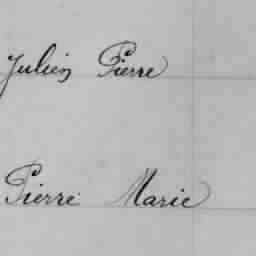 Julien Pierre
Pierre Marie